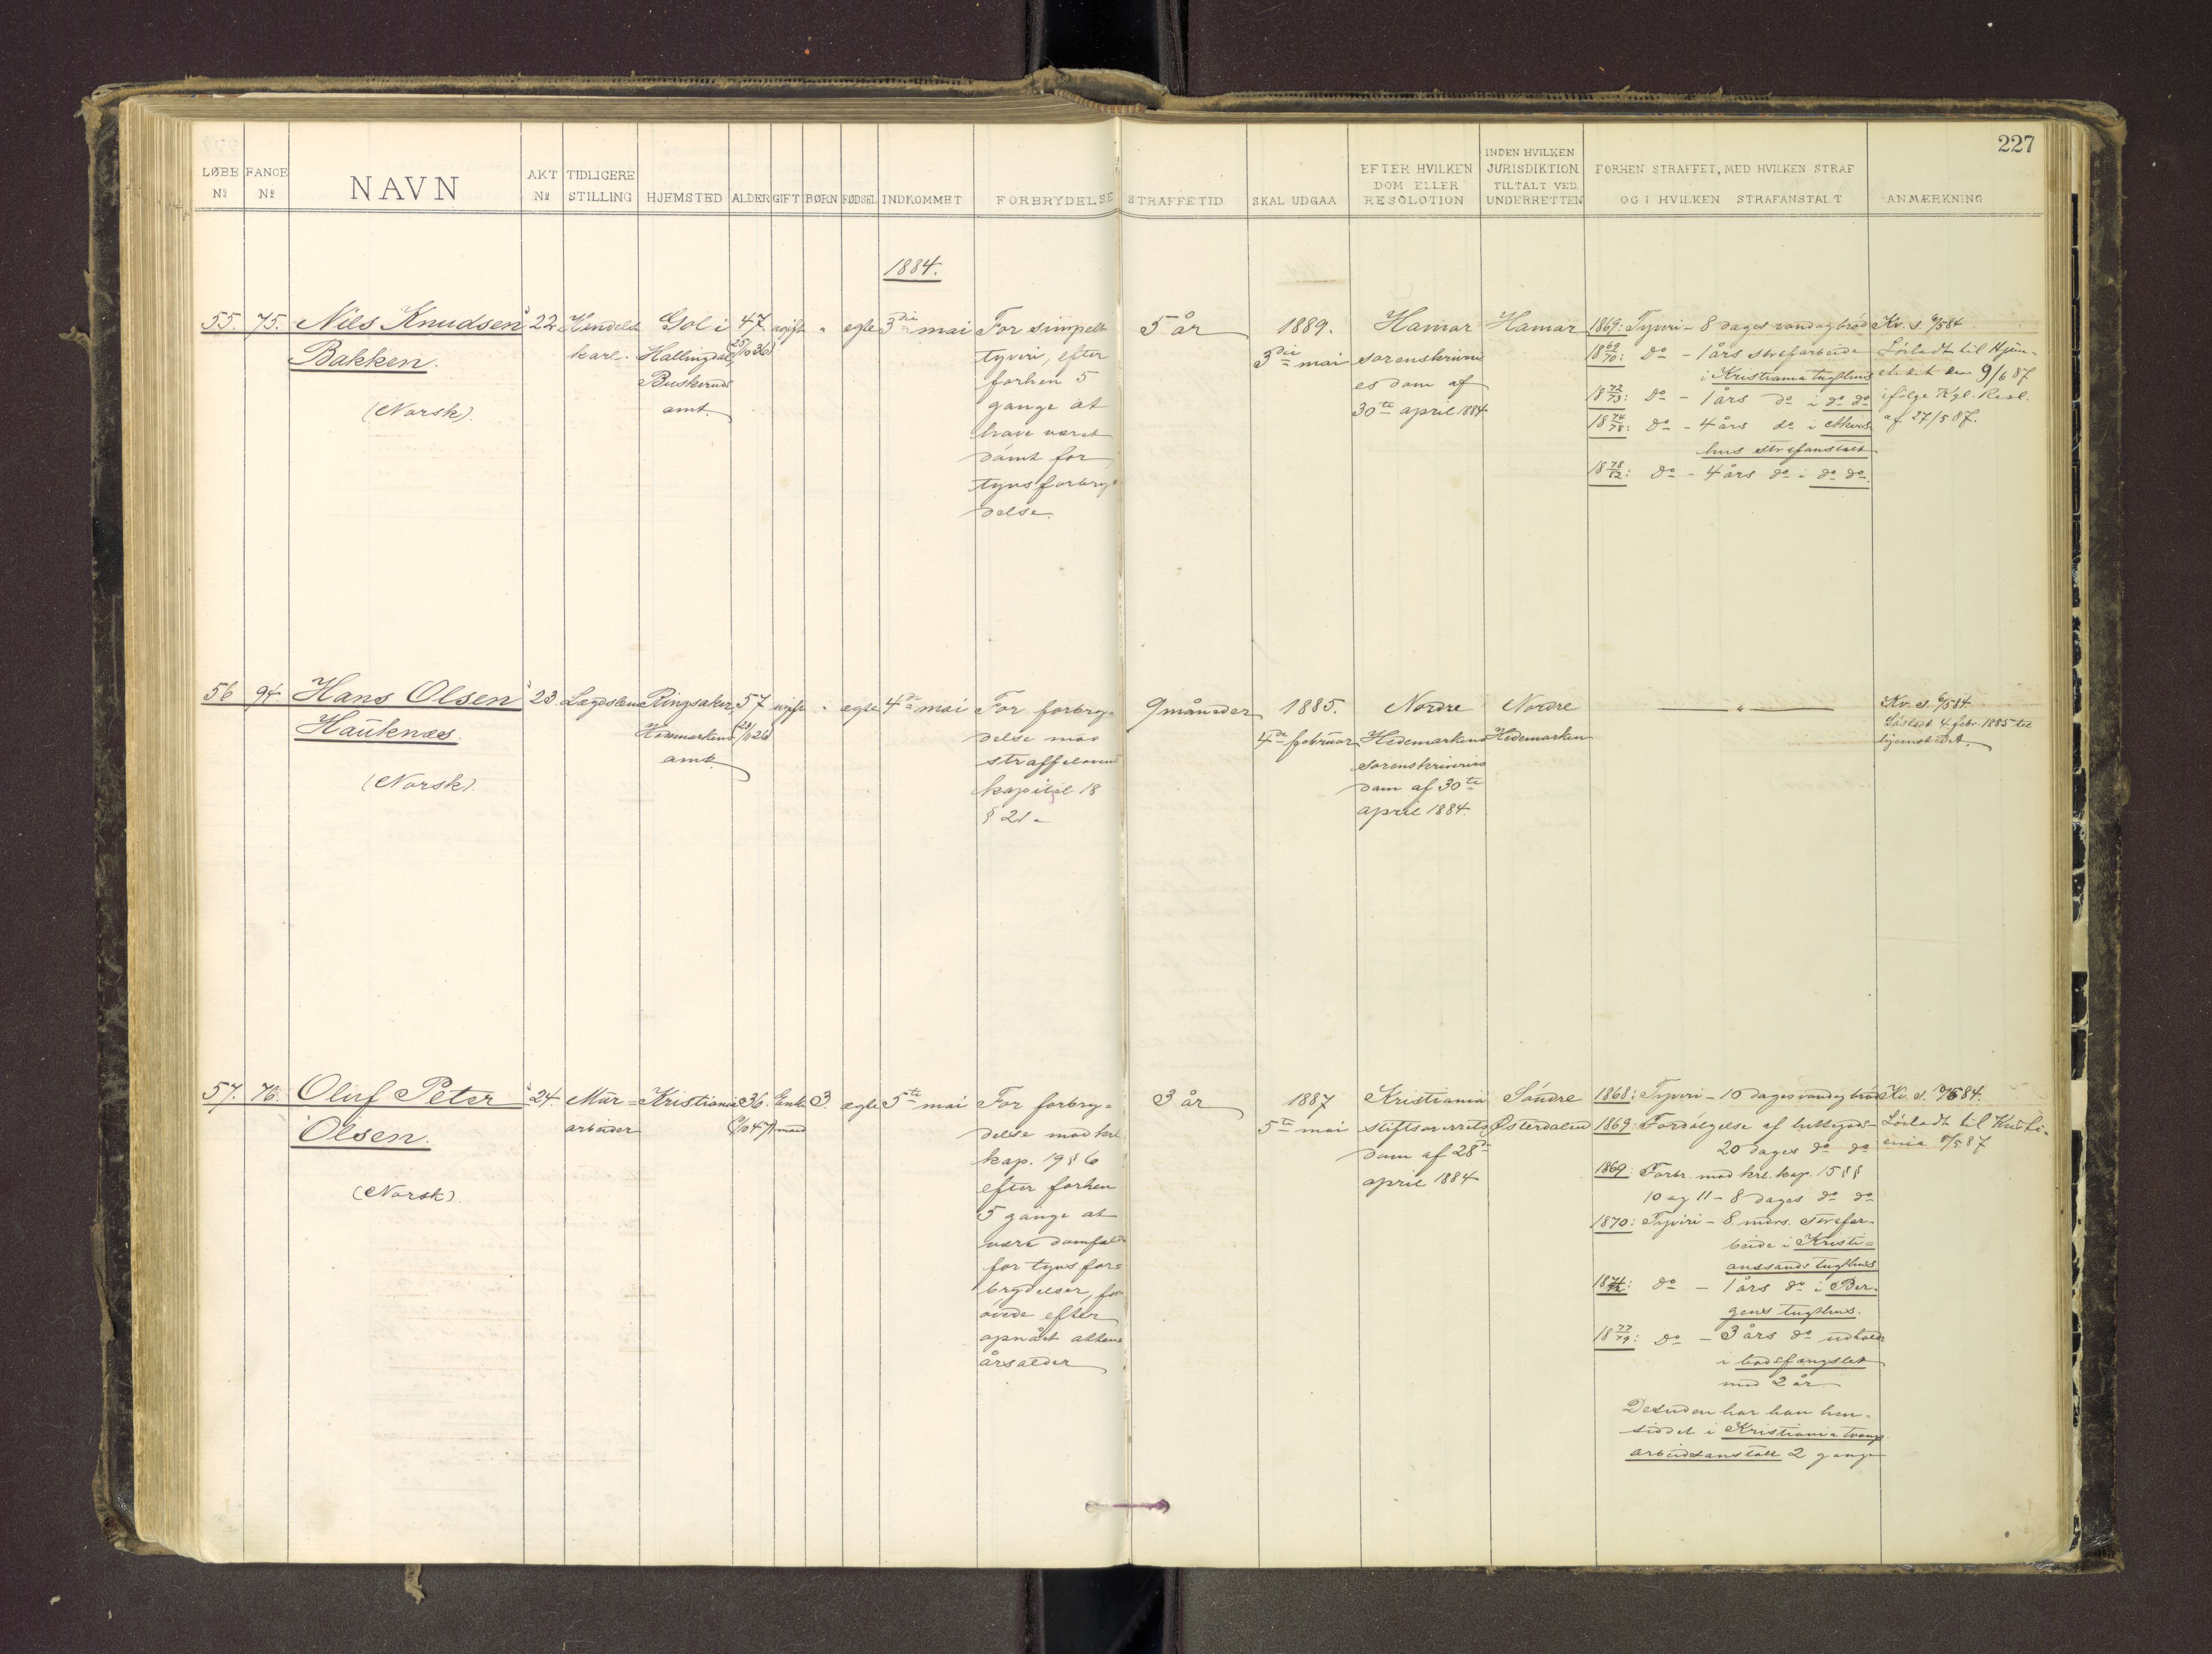 227
LØBE
Nº
FANGE
Nº
NAVN
AKT
Nº
TIDLIGERE
STILLING
HJEMSTED
ALDER
GIFT
BØRN
FØDSEL
INDKOMMET
FORBRYDELSE
STRAFFETID
SKAL UDGAA
EFTER HVILKEN
DOM ELLER
RESOLUTION
INDEN HVILKEN
JURISDIKTION
TILTALT VED
UNDERRETTEN
FORHEN STRAFFET, MED HVILKEN STRAF
OG I HVILKEN STRAFANSTALT
ANMÆRKNING
1884.
55.
75.
Nils Knudsen
Bakken.
(Norsk).
22
Handels
karl.
Gol i
Hallingdal,
Buskeruds
amt.
47.
(25/10 36)
ugift
"
egte
3die mai
For simpelt
tyveri, efter
forhen 5
gange at
have været
dømt for
tyvsforbry-
delse.
5 år
1889.
3die mai
Hamar
sorenskriveri
es dom af
30te april 1884
Hamar
1869: Tyveri - 8 dages vand og brød
18 69/70: do - 1 års strafarbeide
i Kristiania tugthus
18 72/73: do - 1 års do i do do
18 74/78: do - 4 års do i Akers-
hus strafanstalt
18 78/82: do - 4 års do i do do.
Kv. s. 6/5 84
Løsladt til Hjem-
stedet den 9/6 87
ifølge Kgl. Resl.
af 27/5 87.
56
94
Hans Olsen
Hauknæs.
(Norsk).
23
Lægdslem
Ringsaker,
Hedemarkens
amt.
57
ugift
"
egte
4de mai
For forbry-
delse mod
straffelovens
kapitel 18
§ 21.
9 måneder
1885.
4de februar
Nordre
Hedemarkens
sorenskriveries
dom af 30te
april 1884.
Nordre
Hedemarken
"
Kv. s. 6/5 84
Løsladt 4 febr. 1885 til
hjemstedet.
57.
76.
Oluf Peter
Olsen.
(Norsk).
24.
Mur-
arbeider
Kristiania
36.
Enke
mand
3.
egte
5te mai
For forbry-
delse mod krl.
kap. 19 § 6
efter forhen
5 gange at
være domfældt
for tyvsfor-
brydelser, for
øvede efter
opnået atten
årsalder
3 år
1887
5te mai
Kristiania
stiftsoverrets
dom af 28de
april 1884
Søndre
Østerdalen
1868: Tyveri - 10 dages vand og brød
1869: Fordølgelse af hittegods-
20 dages do do
1869: Forbr. mod krl. kap. 15 §§
10 og 11 - 8 dages do do
1870: Tyveri - 8 mdrs. strafar-
beide i Kristi-
anssands tugthus
do - 1 års do i Ber-
gens tugthus.
18 77/79: do - 3 års do udholdt
i bodsfængslet
med 2 år.
Desuden har han hen-
siddet i Kristiania tvangs
arbeidsanstalt 2 gange
Løsladt til Kristi-
ania